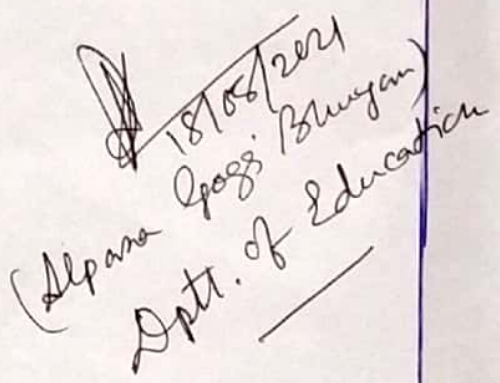 18/08/2021
(Alpana Gogoi Bhuyan)
Dptt. of Education